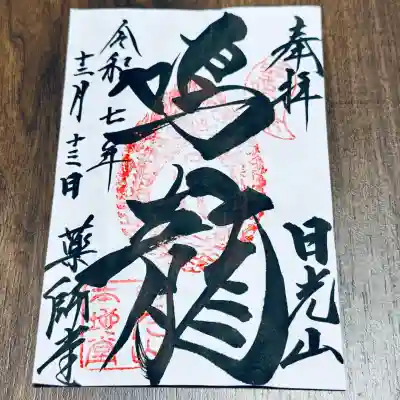 奉拝
日光山
鳴龍
令和七年
十二月十三日
薬師堂